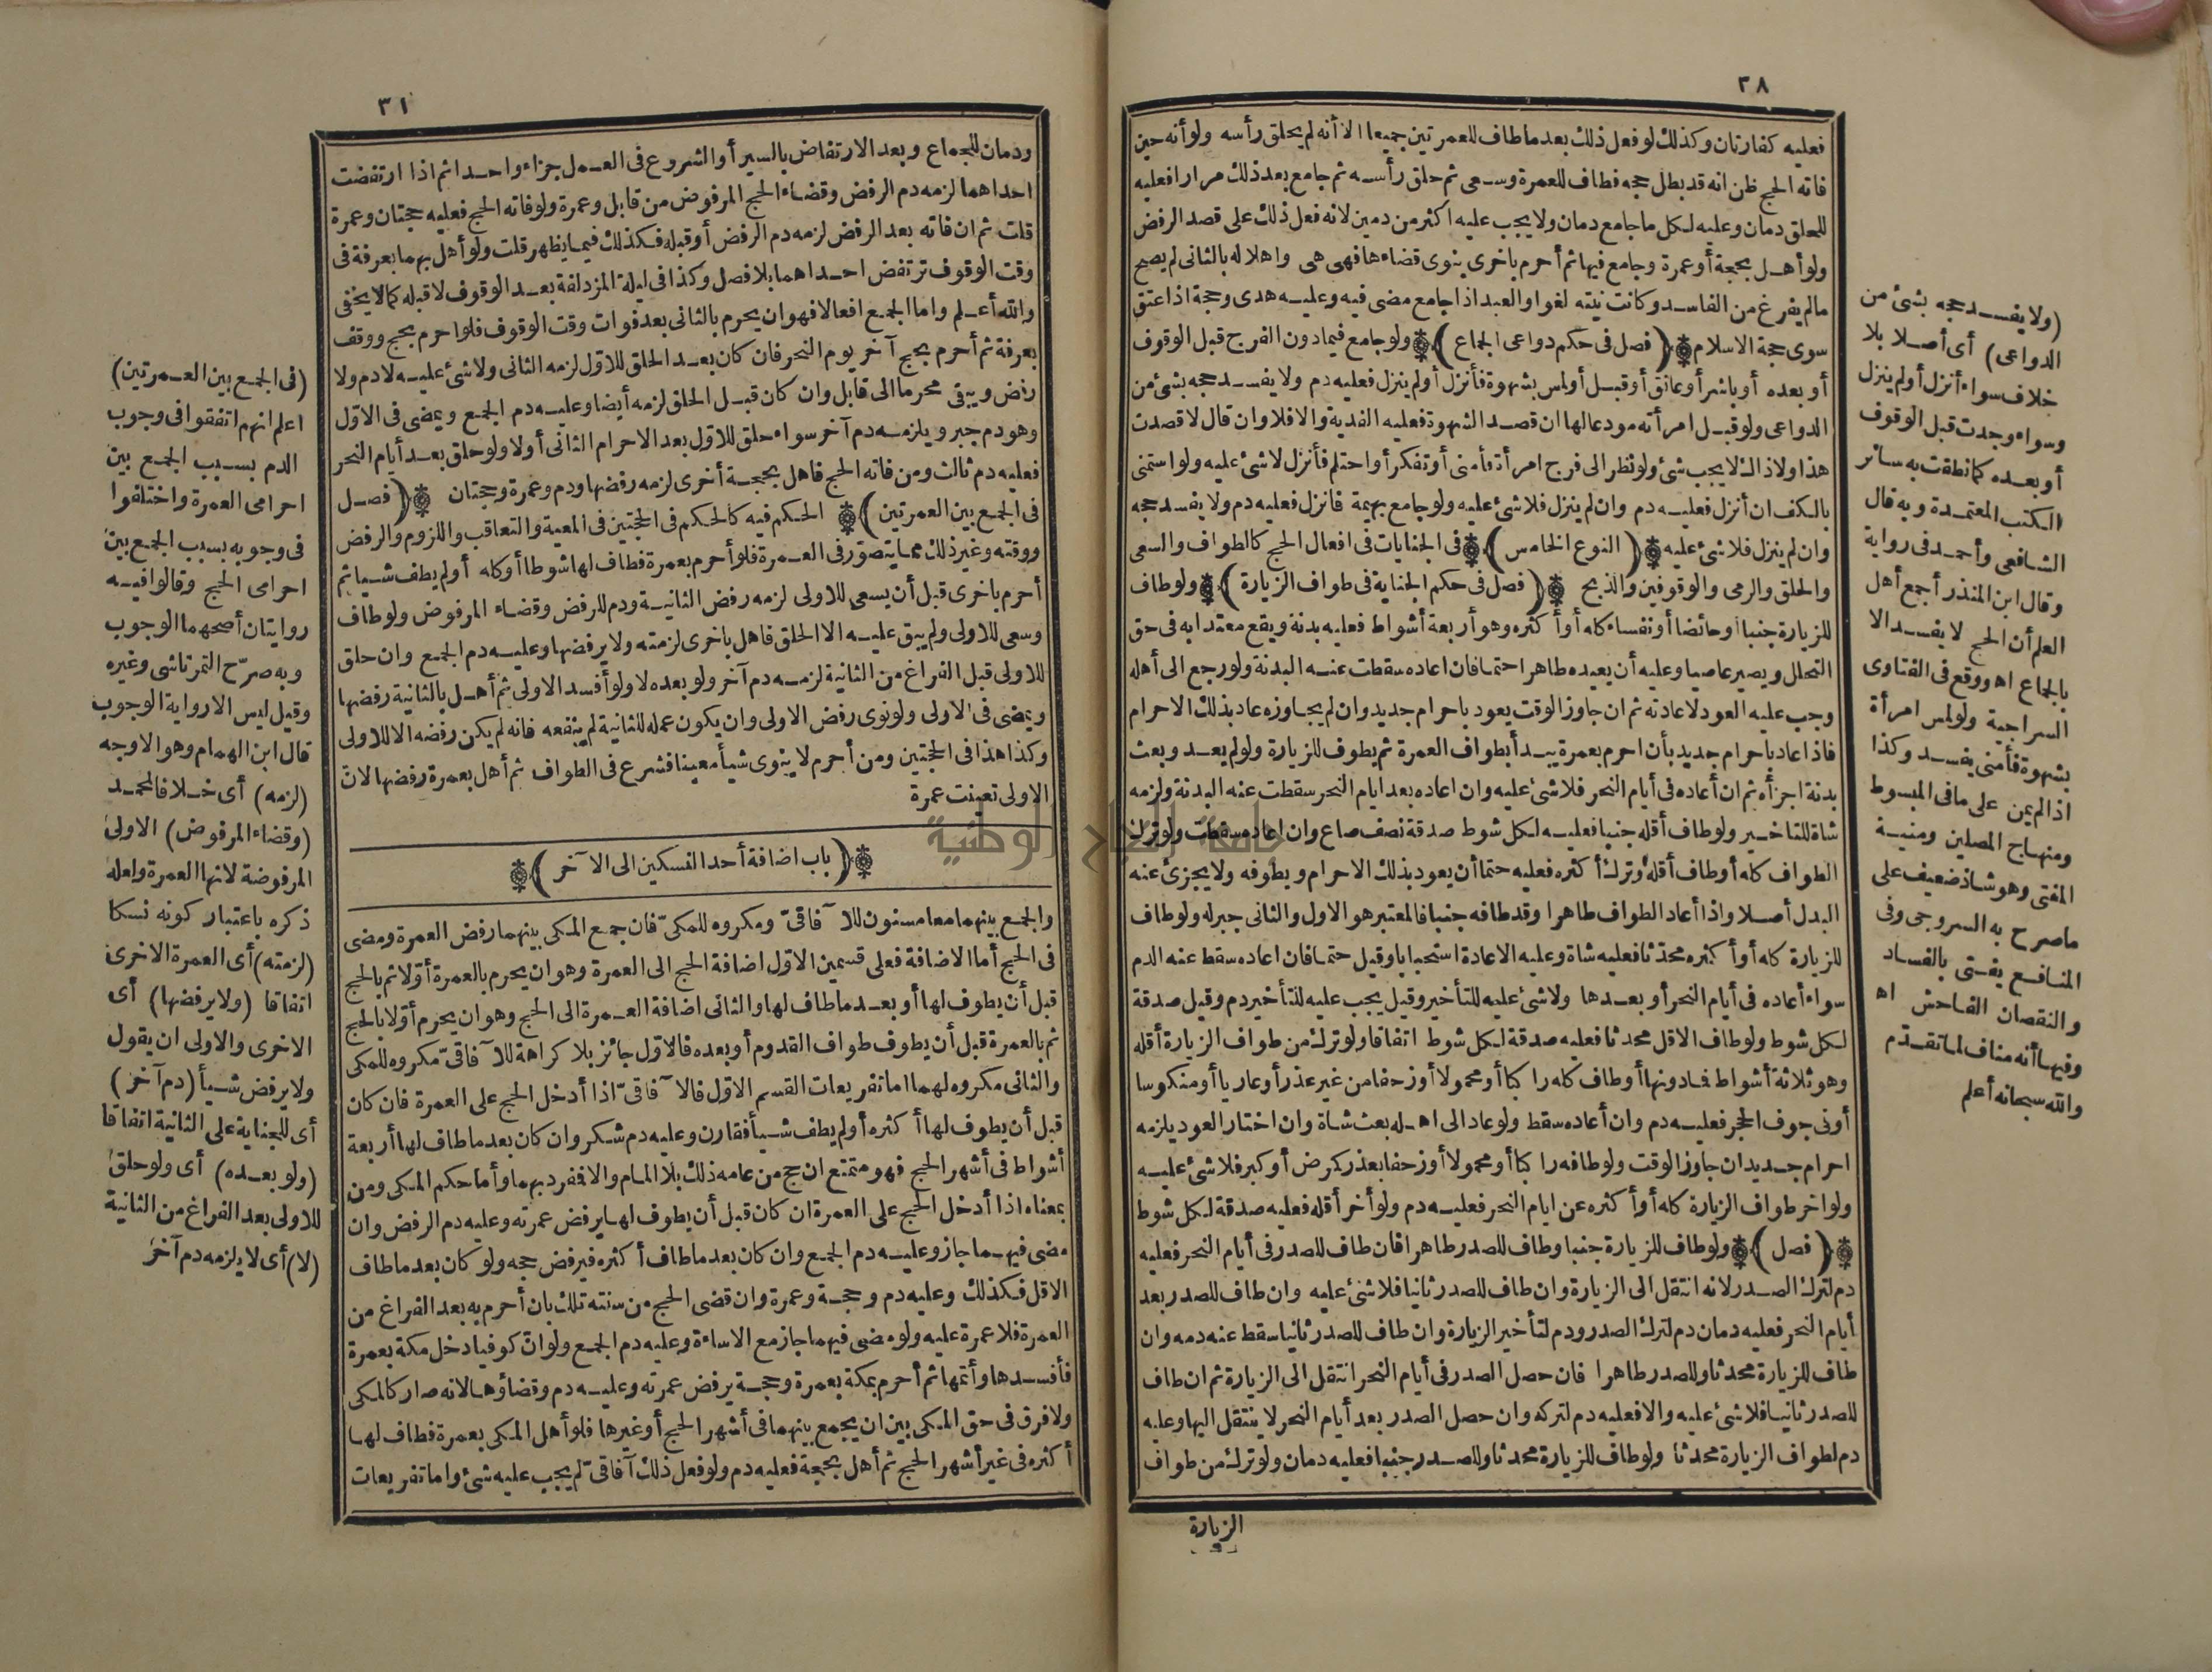 ٣٨
فعليه كفارتان وكذلك لو فعل ذلك بعد ما طاف للعمرتين جميعا الا أنه لم يحلق رأسه ولو أنه حين
فاته الحج ظن انه قد بطل حجه فطاف للعمرة وسعى ثم حلق رأسه ثم جامع بعد ذلك مرارا فعليه
للحلق دمان وعليه لكل ما جامع دمان ولا يجب عليه اكثر من دمين لانه فعل ذلك على قصد الرفض
ولو أهل بحجة أو عمرة وجامع فيها ثم أحرم باخرى ينوى قضاءها فهى هى واهلاله بالثانى لم يصح
مالم يفرغ من الفاسد وكانت نيته لغوا والعبد اذا جامع مضى فيه وعليه هدى وحجة اذا عتق
سوى حجة الاسلام (فصل فى حكم دواعى الجماع) ولو جامع فيما دون الفرج قبل الوقوف
أو بعده أو باشر أو عانق أو قبل أو لمس بشهوة فأنزل أو لم ينزل فعليه دم ولا يفسد حجه بشئ من
الدواعى ولو قبل امرأته مودعا لها ان قصد الشهوة فعليه الفدية والا فلا وان قال لا قصدت
هذا ولا ذاك لا يجب شئ ولو نظر الى فرج امرأة فأمنى أو تفكر أو احتلم فأنزل لا شئ عليه ولو استمنى
بالكف ان أنزل فعليه دم وان لم ينزل فلا شئ عليه ولو جامع بهيمة فانزل فعليه دم ولا يفسد حجه
وان لم ينزل فلا شئ عليه (النوع الخامس) فى الجنايات فى افعال الحج كالطواف والسعى
والحلق والرمى والوقوفين والذبح (فصل فى حكم الجناية فى طواف الزيارة) ولو طاف
للزيارة جنبا أو حائضا أو نفساء كله أو أكثره وهو أربعة أشواط فعليه بدنة ويقع معتدا به فى حق
التحلل ويصير عاصيا وعليه أن يعيده طاهرا حتما فان اعاده سقطت عنه البدنة ولو رجع الى أهله
وجب عليه العود لاعادته ثم ان جاوز الوقت يعود باحرام جديد وان لم يجاوزه عاد بذلك الاحرام
فاذا عاد باحرام جديد بأن احرم بعمرة يبدأ بطواف العمرة ثم يطوف للزيارة ولو لم يعد وبعث
بدنة اجزأه ثم ان أعاده فى أيام النحر فلا شئ عليه وان اعاده بعد ايام النحر سقطت عنه البدنة ولزمه
شاة للتاخير ولو طاف أقله جنبا فعليه لكل شوط صدقة نصف صاع وان اعاده سقطت ولو ترك
الطواف كله أو طاف أقله وترك أكثره فعليه حتما أن يعود بذلك الاحرام ويطوفه ولا يجزئ عنه
البدل أصلا واذا أعاد الطواف طاهرا وقد طافه جنبا فالمعتبر هو الاول والثانى جبر له ولو طاف
للزيارة كله أو أكثره محدثا فعليه شاة وعليه الاعادة استحبابا وقيل حتما فان اعاده سقط عنه الدم
سواء أعاده فى أيام النحر أو بعدها ولا شئ عليه للتأخير وقيل يجب عليه للتأخير دم وقيل صدقة
لكل شوط ولو طاف الاقل محدثا فعليه صدقة لكل شوط اتفاقا ولو ترك من طواف الزيارة أقله
وهو ثلاثة أشواط فما دونها أو طاف كله راكبا أو محمولا أو زحفا من غير عذر أو عاريا أو منكوسا
أو فى جوف الحجر فعليه دم وان أعاده سقط ولو عاد الى اهله بعث شاة وان اختار العود يلزمه
احرام جديد ان جاوز الوقت ولو طافه راكبا أو محمولا أو زحفا بعذر كمرض أو كبر فلا شئ عليه
ولو اخر طواف الزيارة كله أو أكثره عن ايام النحر فعليه دم ولو أخر أقله فعليه صدقة لكل شوط
(فصل) ولو طاف للزيارة جنبا وطاف للصدر طاهرا فان طاف للصدر فى أيام النحر فعليه
دم لترك الصدر لانه انتقل الى الزيارة وان طاف للصدر ثانيا فلا شئ عليه وان طاف للصدر بعد
أيام النحر فعليه دمان دم لترك الصدر ودم لتأخير الزيارة وان طاف للصدر ثانيا سقط عنه دمه وان
طاف للزيارة محدثا وللصدر طاهرا فان حصل الصدر فى أيام النحر انتقل الى الزيارة ثم ان طاف
للصدر ثانيا فلا شئ عليه والا فعليه دم لتركه وان حصل الصدر بعد أيام النحر لا ينتقل اليها وعليه
دم لطواف الزيارة محدثا ولو طاف للزيارة محدثا وللصدر جنبا فعليه دمان ولو ترك من طواف
الزيارة
(ولا يفسد حجه بشئ من
الدواعى) أى أصلا بلا
خلاف سواء أنزل أو لم ينزل
وسواء وجدت قبل الوقوف
أو بعده كما نطقت به سائر
الكتب المعتمدة وبه قال
الشافعى وأحمد فى رواية
وقال ابن المنذر أجمع أهل
العلم أن الحج لا يفسد الا
بالجماع اه ووقع فى الفتاوى
السراجية ولو لمس امرأة
بشهوة فأمنى يفسد وكذا
اذا لم يمن على ما فى المبسوط
ومنهاج المصلين ومنية
المفتى وهو شاذ ضعيف على
ما صرح به السروجى وفى
المنافع يفتى بالفساد
والنقصان الفاحش اه
وفيها أنه مناف لما تقدم
والله سبحانه أعلم
٣١
ودمان للجماع وبعد الارتفاض بالسير أو الشروع فى العمل جزاء واحد ثم اذا ارتفضت
احداهما لزمه دم الرفض وقضاء الحج المرفوض من قابل وعمرة ولو فاته الحج فعليه حجتان وعمرة
قلت ثم ان فاته بعد الرفض لزمه دم الرفض أو قبله فكذلك فيما يظهر قلت ولو أهل بهما بعرفة فى
وقت الوقوف ترتفض احداهما بلا فصل وكذا فى ليلة المزدلفة بعد الوقوف لا قبله كما لا يخفى
والله أعلم واما الجمع افعالا فهو ان يحرم بالثانى بعد فوات وقت الوقوف فلو احرم بحج ووقف
بعرفة ثم أحرم بحج آخر يوم النحر فان كان بعد الحلق للاول لزمه الثانى ولا شئ عليه لا دم ولا
رفض ويبقى محرما الى قابل وان كان قبل الحلق لزمه أيضا وعليه دم الجمع ويمضى فى الاول
وهو دم جبر ويلزمه دم آخر سواء حلق للاول بعد الاحرام الثانى أو لا ولو حلق بعد أيام النحر
فعليه دم ثالث ومن فاته الحج فاهل بحجة أخرى لزمه رفضها ودم وعمرة وحجتان (فصل
فى الجمع بين العمرتين) الحكم فيه كالحكم فى الحجتين فى المعية والتعاقب واللزوم والرفض
ووقته وغير ذلك مما يتصور فى العمرة فلو أحرم بعمرة فطاف لها شوطا أو كله أو لم يطف شيأ ثم
أحرم باخرى قبل أن يسعى للاولى لزمه رفض الثانية ودم للرفض وقضاء المرفوض ولو طاف
وسعى للاولى ولم يبق عليه الا الحلق فاهل باخرى لزمته ولا يرفضها وعليه دم الجمع وان حلق
للاولى قبل الفراغ من الثانية لزمه دم آخر ولو بعده لا ولو أفسد الاولى ثم أهل بالثانية رفضها
ويمضى فى الاولى ولو نوى رفض الاولى وان يكون عمله للثانية لم ينفعه فانه لم يكن رفضه الا للاولى
وكذا هذا فى الحجتين ومن أحرم لا ينوى شيأ معينا فشرع فى الطواف ثم أهل بعمرة رفضها لان
الاولى تعينت عمرة
(باب اضافة أحد النسكين الى الآخر)
والجمع بينهما معا مسنون للآفاقىّ ومكروه للمكىّ فان جمع المكى بينهما رفض العمرة ومضى
فى الحج أما الاضافة فعلى قسمين الاول اضافة الحج الى العمرة وهو ان يحرم بالعمرة أوّلا ثم بالحج
قبل أن يطوف لها أو بعد ما طاف لها والثانى اضافة العمرة الى الحج وهو ان يحرم أوّلا بالحج
ثم بالعمرة قبل أن يطوف طواف القدوم أو بعده فالاول جائز بلا كراهة للآفاقىّ مكروه للمكى
والثانى مكروه لهما اما تفريعات القسم الاول فالآفاقىّ اذا أدخل الحج على العمرة فان كان
قبل أن يطوف لها أكثره أو لم يطف شيأ فقارن وعليه دم شكر وان كان بعد ما طاف لها أربعة
أشواط فى أشهر الحج فهو متمتع ان حج من عامه ذلك بلا المام والا فمفرد بهما وأما حكم المكى ومن
بمعناه اذا أدخل الحج على العمرة ان كان قبل أن يطوف لها يرفض عمرته وعليه دم الرفض وان
مضى فيهما جاز وعليه دم الجمع وان كان بعد ما طاف أكثره فيرفض حجه ولو كان بعد ما طاف
الاقل فكذلك وعليه دم وحجة وعمرة وان قضى الحج من سنته تلك بان أحرم به بعد الفراغ من
العمرة فلا عمرة عليه ولو مضى فيهما جاز مع الاساءة وعليه دم الجمع ولو ان كوفيا دخل مكة بعمرة
فأفسدها وأتمها ثم أحرم بمكة بعمرة وحجة يرفض عمرته وعليه دم وقضاؤها لانه صار كالمكى
ولا فرق فى حق المكى بين ان يجمع بينهما فى أشهر الحج أو غيرها فلو أهل المكى بعمرة فطاف لها
أكثره فى غير أشهر الحج ثم أهل بحجة فعليه دم ولو فعل ذلك آفاقىّ لم يجب عليه شئ واما تفريعات
(فى الجمع بين العمرتين)
اعلم انهم اتفقوا فى وجوب
الدم بسبب الجمع بين
احرامى العمرة واختلفوا
فى وجوبه بسبب الجمع بين
احرامى الحج وقالوا فيه
روايتان أصحهما الوجوب
وبه صرّح التمرتاشى وغيره
وقيل ليس الا رواية الوجوب
قال ابن الهمام وهو الاوجه
(لزمه) أى خلافا لمحمد
(وقضاء المرفوض) الاولى
المرفوضة لانها العمرة ولعله
ذكره باعتبار كونه نسكا
(لزمته) أى العمرة الاخرى
اتفاقا (ولا يرفضها) أى
الاخرى والاولى ان يقول
ولا يرفض شيأ (دم آخر)
أى للجناية على الثانية اتفاقا
(ولو بعده) أى ولو حلق
للاولى بعد الفراغ من الثانية
(لا) أى لا يلزمه دم آخر
جامعة النجاح الوطنية